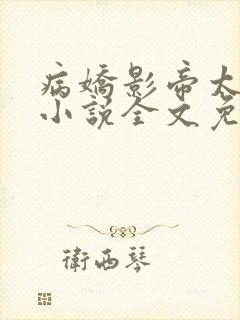 病嬌影帝太
小說全文免
衛西琴